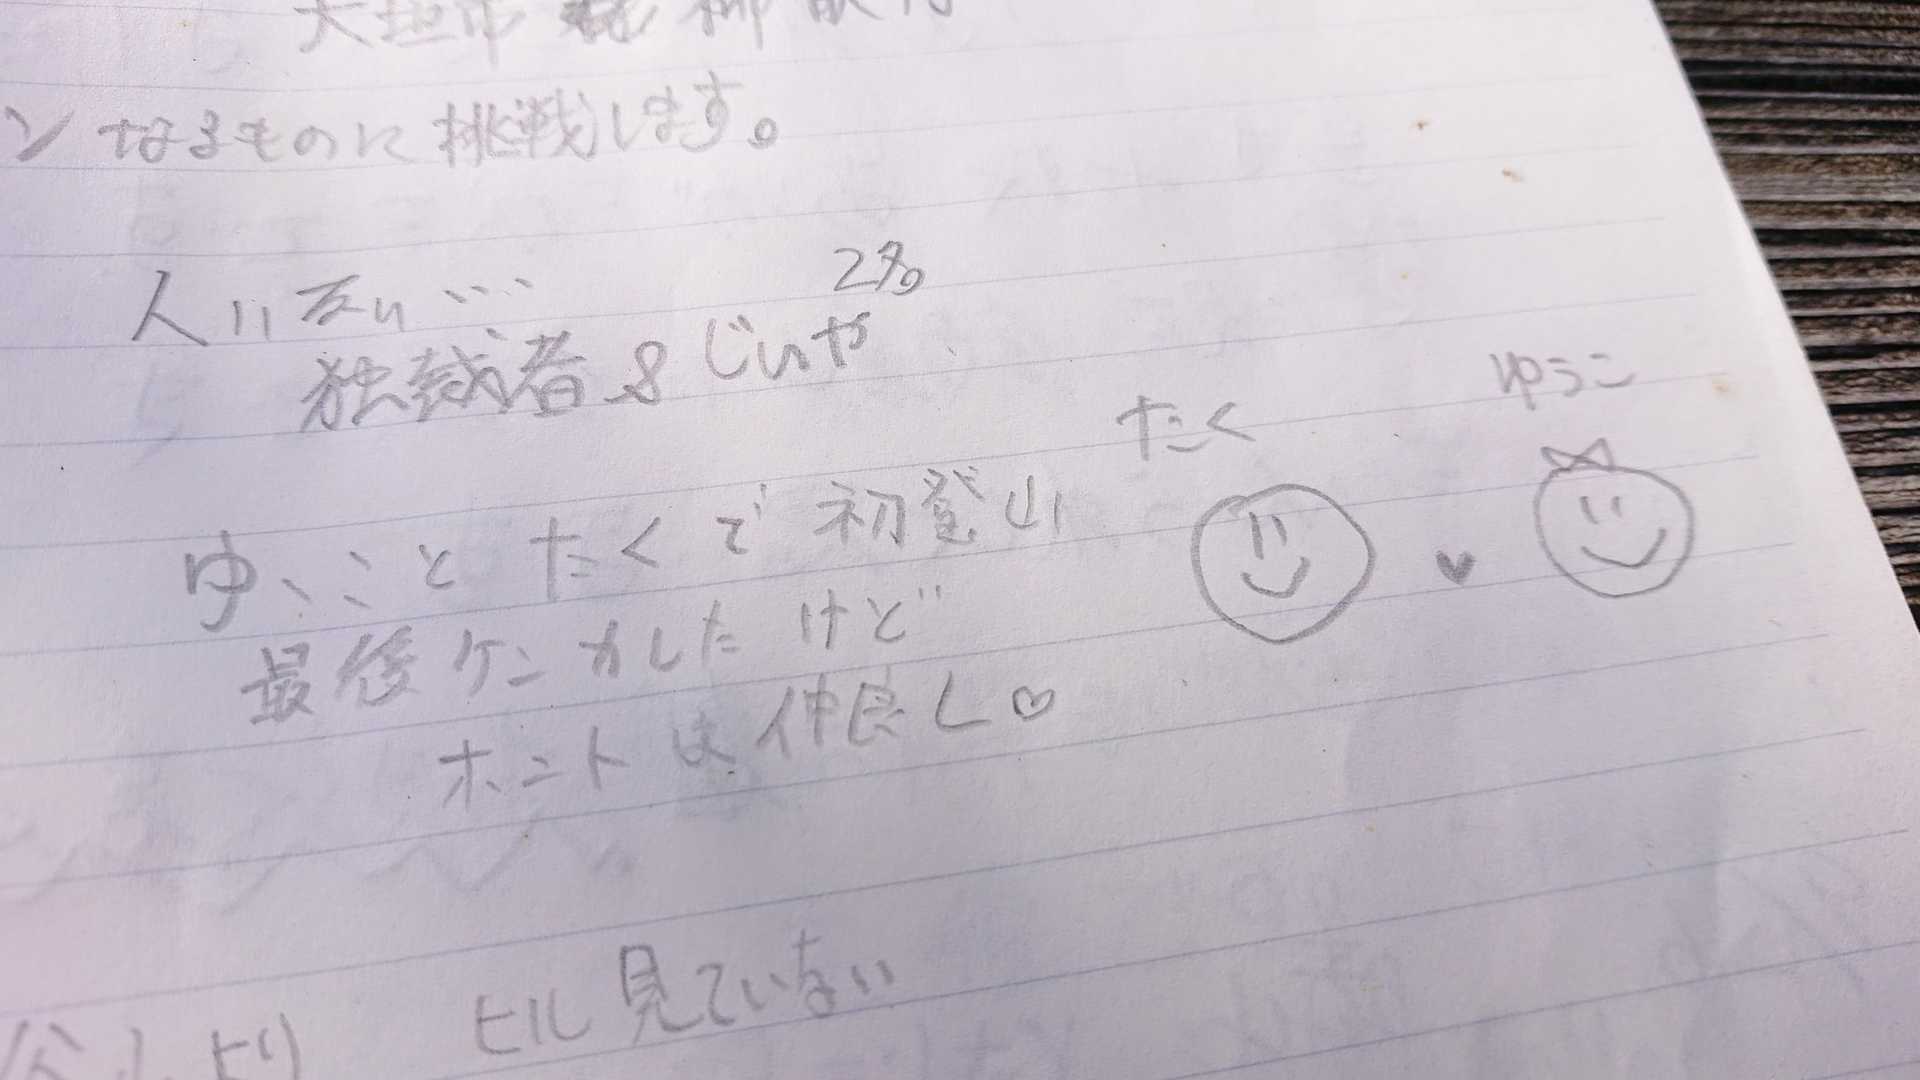 なるものに挑戦します。
人に云い…
2名
じいや
たく
ゆうこ
ゆうことたくで初登山
最後ケンカしたけど
ホントは仲良し♡
ヒル見ていない